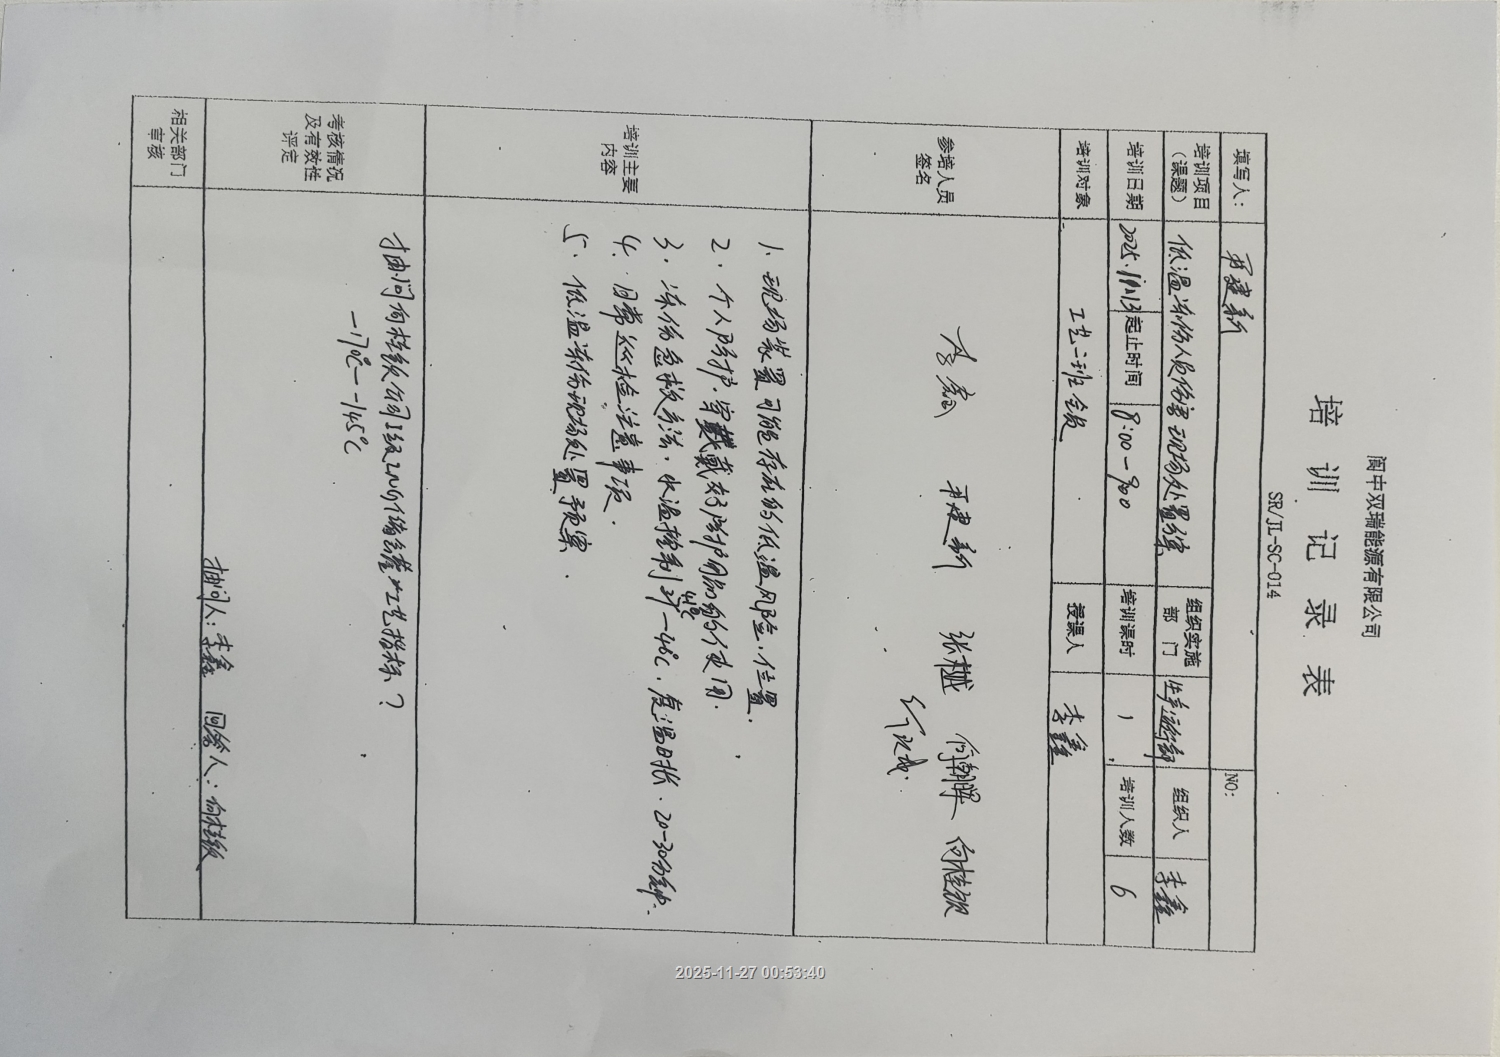 阆中双瑞能源有限公司
培训记录表
SR/JL-SC-014
填写人： 建新 NO:
培训项目（课题） 低温冻伤人员伤害现场处置 组织实施部门 生产运行部 组织人 李鑫
培训日期 2025. 起止时间 8:00-9:00 培训课时 1 培训人数 6
培训对象 工艺一班全员 授课人 李鑫
参培人员签名 李鑫 建新 张樾 何朝晖 向桂钦
培训主要内容
1、现场装置可能存在的低温风险、位置.
2、个人防护、穿戴好防护用品的使用.
3、冻伤急救方法、水温控制 -42℃、复温时长、20-30分钟.
4、日常巡检注意事项.
5、低温冻伤现场处置预案.
考核情况及有效性评定
抽问向桂钦公司1级LNG储罐工艺指标?
-170℃--145℃
抽问人：李鑫 回答人：向桂钦
相关部门审核
2025-11-27 00:53:40